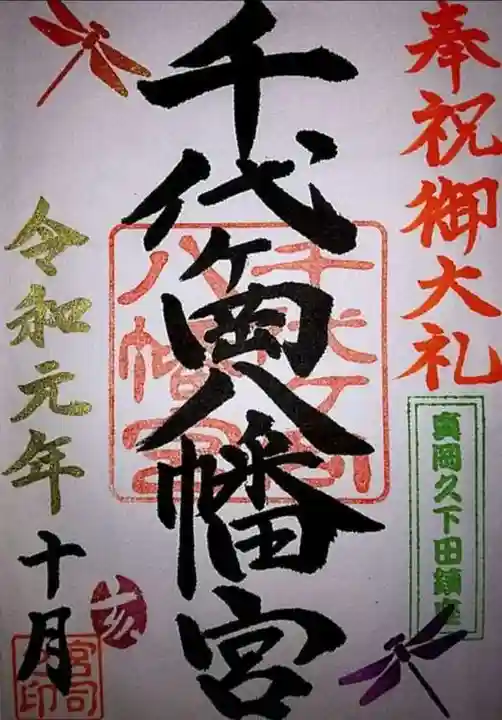 奉祝御大礼
真岡久下田鎮座
千代ヶ岡八幡宮
千代ヶ岡
八幡宮
令和元年十月
亥
宮司
之印